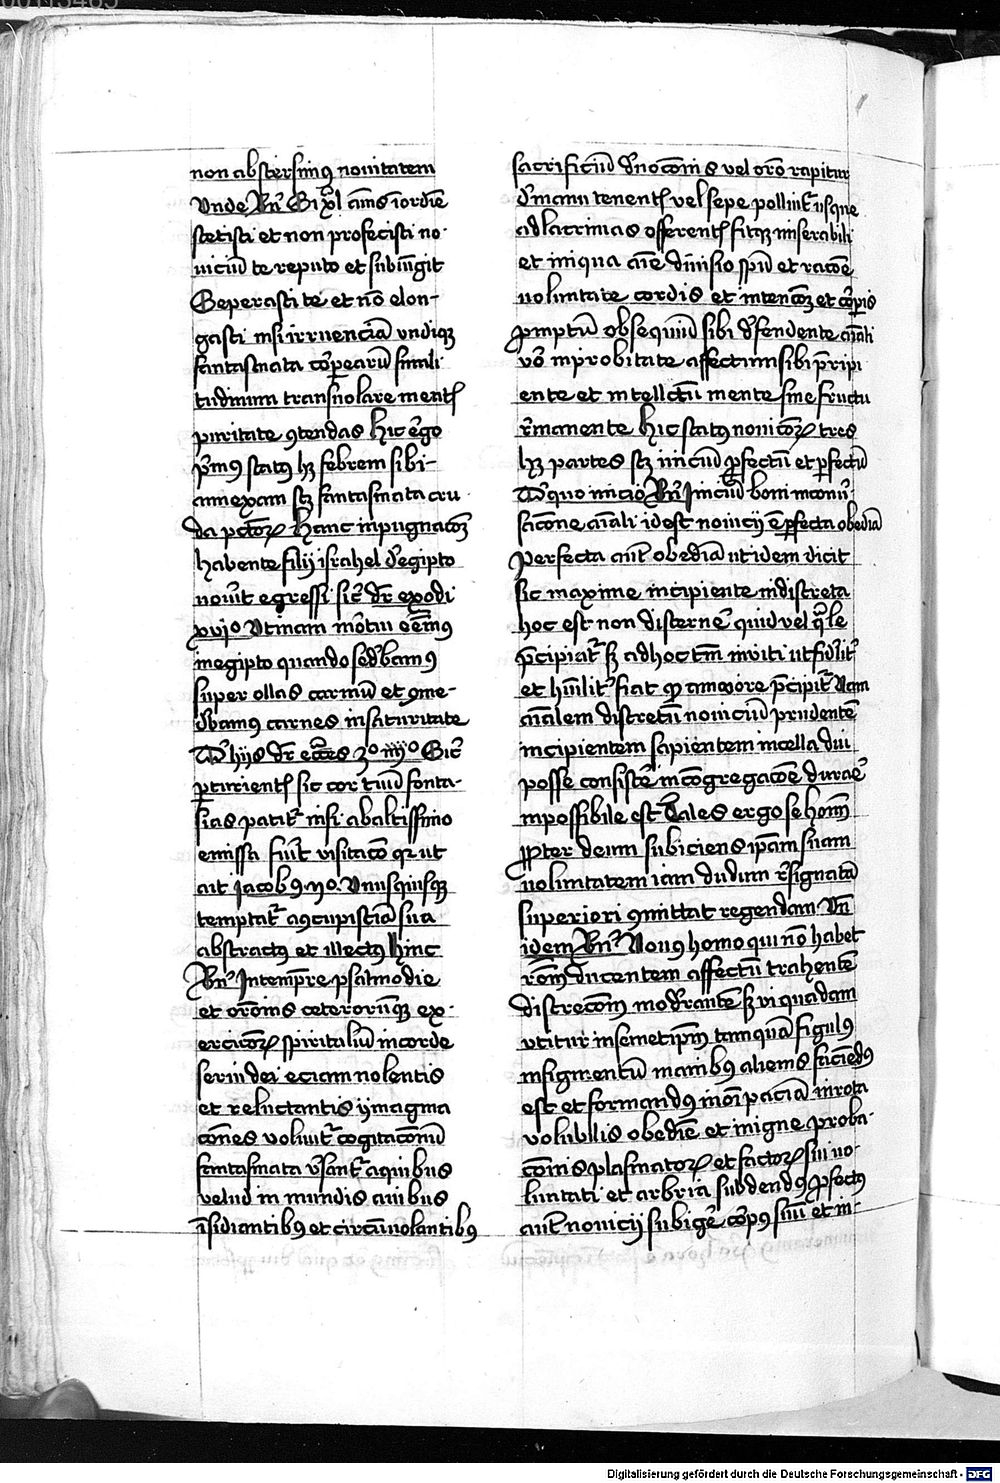 non abstersimus nouitatem
Vnde Bern̄ Si xl annis in ordīe
stetisti et non profecisti no-
uiciū te reputo et subiūgit
Seperasti te et nō elon-
gasti nisi irruenciā vndiqꝫ
fantasmata corporearū simili
tudinum transuolare mentis
puritate ꝯtendas Hic ergo
primꝰ statꝰ hꝫ febrem sibi-
annexam scꝫ fantasmata cru-
da pctōꝝ Hanc inpugnacōꝫ
habente filij israhel de egipto
nouit̄ egressi sic̄ dr̄ exodi
xvjº Vtinam mortui eēmꝰ
in egipto quando sedebamꝰ
super ollas carniū et ꝯme-
debamꝰ carnes in saturitate
De hijs dr̄ ecces 3º iiijº Sic̄
parturientis sic cor tuū fanta-
sias patit̄ nisi ab altissimo
emissa fuit̄ visitacō qr ut
ait Jacobꝰ Vnusquisqꝫ
temptat̄ a ꝯcupiscīa sua
abstractꝰ et illectꝰ Hinc
Bern̄ In tempore psalmodie
et oronis ceterorūqꝫ ex-
ercicōꝝ spiritaliū in corde
serui dei eciam nolentis
et reluctantis ymagina
cōnes voluūt̄ cogitacōnū
fantasmata v̄sant̄ a quibus
velud in mundis auibus
īsidiantibꝰ et circūuolantibꝰ
sacrificiū deuocōnis vel orō rapitur
de manu tenentis vel sepe polluit̄ usque
ad lacrimas offerentis fitqꝫ miserabili
et iniqua aīe diuisio spū et racōe
uoluntate cordis et intencōꝫ et corporis
promptū obsequiū sibi defendente aīali
vo inprobitate affectum sibi preripi
ente et intellectū mente sine fructu
remanente Hic statꝰ nouicōꝝ tres
hꝫ partes scꝫ iniciū profectū et perfectū
De quo inicio Bern̄ Iniciū boni in conuer-
sacōne aīali id est nouicij ē perfecta obediā
Perfecta aut̄ obediā ut idem dicit
sic maxime incipiente indiscreta
hoc est non discerne quid vel quale
precipiat̄ sꝫ ad hoc tm̄ inuiti ut fidelit̄
et humilit̄ fiat quod a maiore precipit̄ Nam
aīalem discretū nouiciū prudentē
incipientem sapientem in cella diu
posse consistē in congregacōe durare
inpossibile est Tales ergo se homī
propter deum subiciens ipam suam
uoluntatem iam dudum resignatā
superiori ꝯmittat regendam Vn̄
idem Bern̄ Nouꝰ homo qui nō habet
rōnem ducentem affectū trahentē
discrecōem moderantē sꝫ vi quadam
vtitur in semetipm̄ tamquā figulꝰ
in figmentū manibꝰ alienis faciēdꝰ
est et formandꝰ in omī paciā in rota
volubilis obediē et in igne proba-
cōnis plasmatoꝝ et factoꝝ sui uo-
luntati et arbriā subdendꝰ profectꝰ
aut̄ nouicij subigē corpꝰ suū et in-